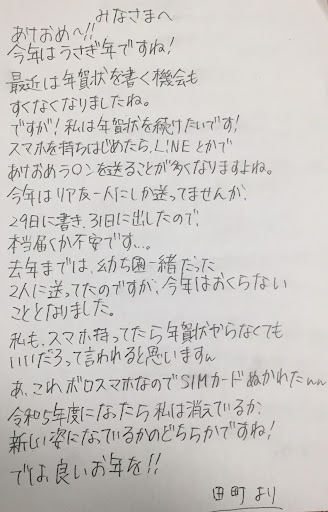 みなさまへ
あけおめ〜!!
今年はうさぎ年ですね!
最近は年賀状を書く機会も
すくなくなりましたね。
ですが!私は年賀状を続けたいです!
スマホを持ちはじめたら、LINEとかで
あけおめラ〇ンを送ることが多くなりますよね。
今年はリア友一人にしか送ってませんが、
29日に書き、31日に出したので、
本当届くか不安です...。
去年までは、幼ち園一緒だった
2人に送ってたのですが、今年はおくらない
こととなりました。
私も、スマホ持ってたら年賀状やらなくても
いいだろって言われると思いますw
あ、これ、ボロスマホなのでSIMカードぬかれたww
令和5年度になったら私は消えているか、
新しい姿になっているかのどちらかですね!
では、良いお年を!!
田町より